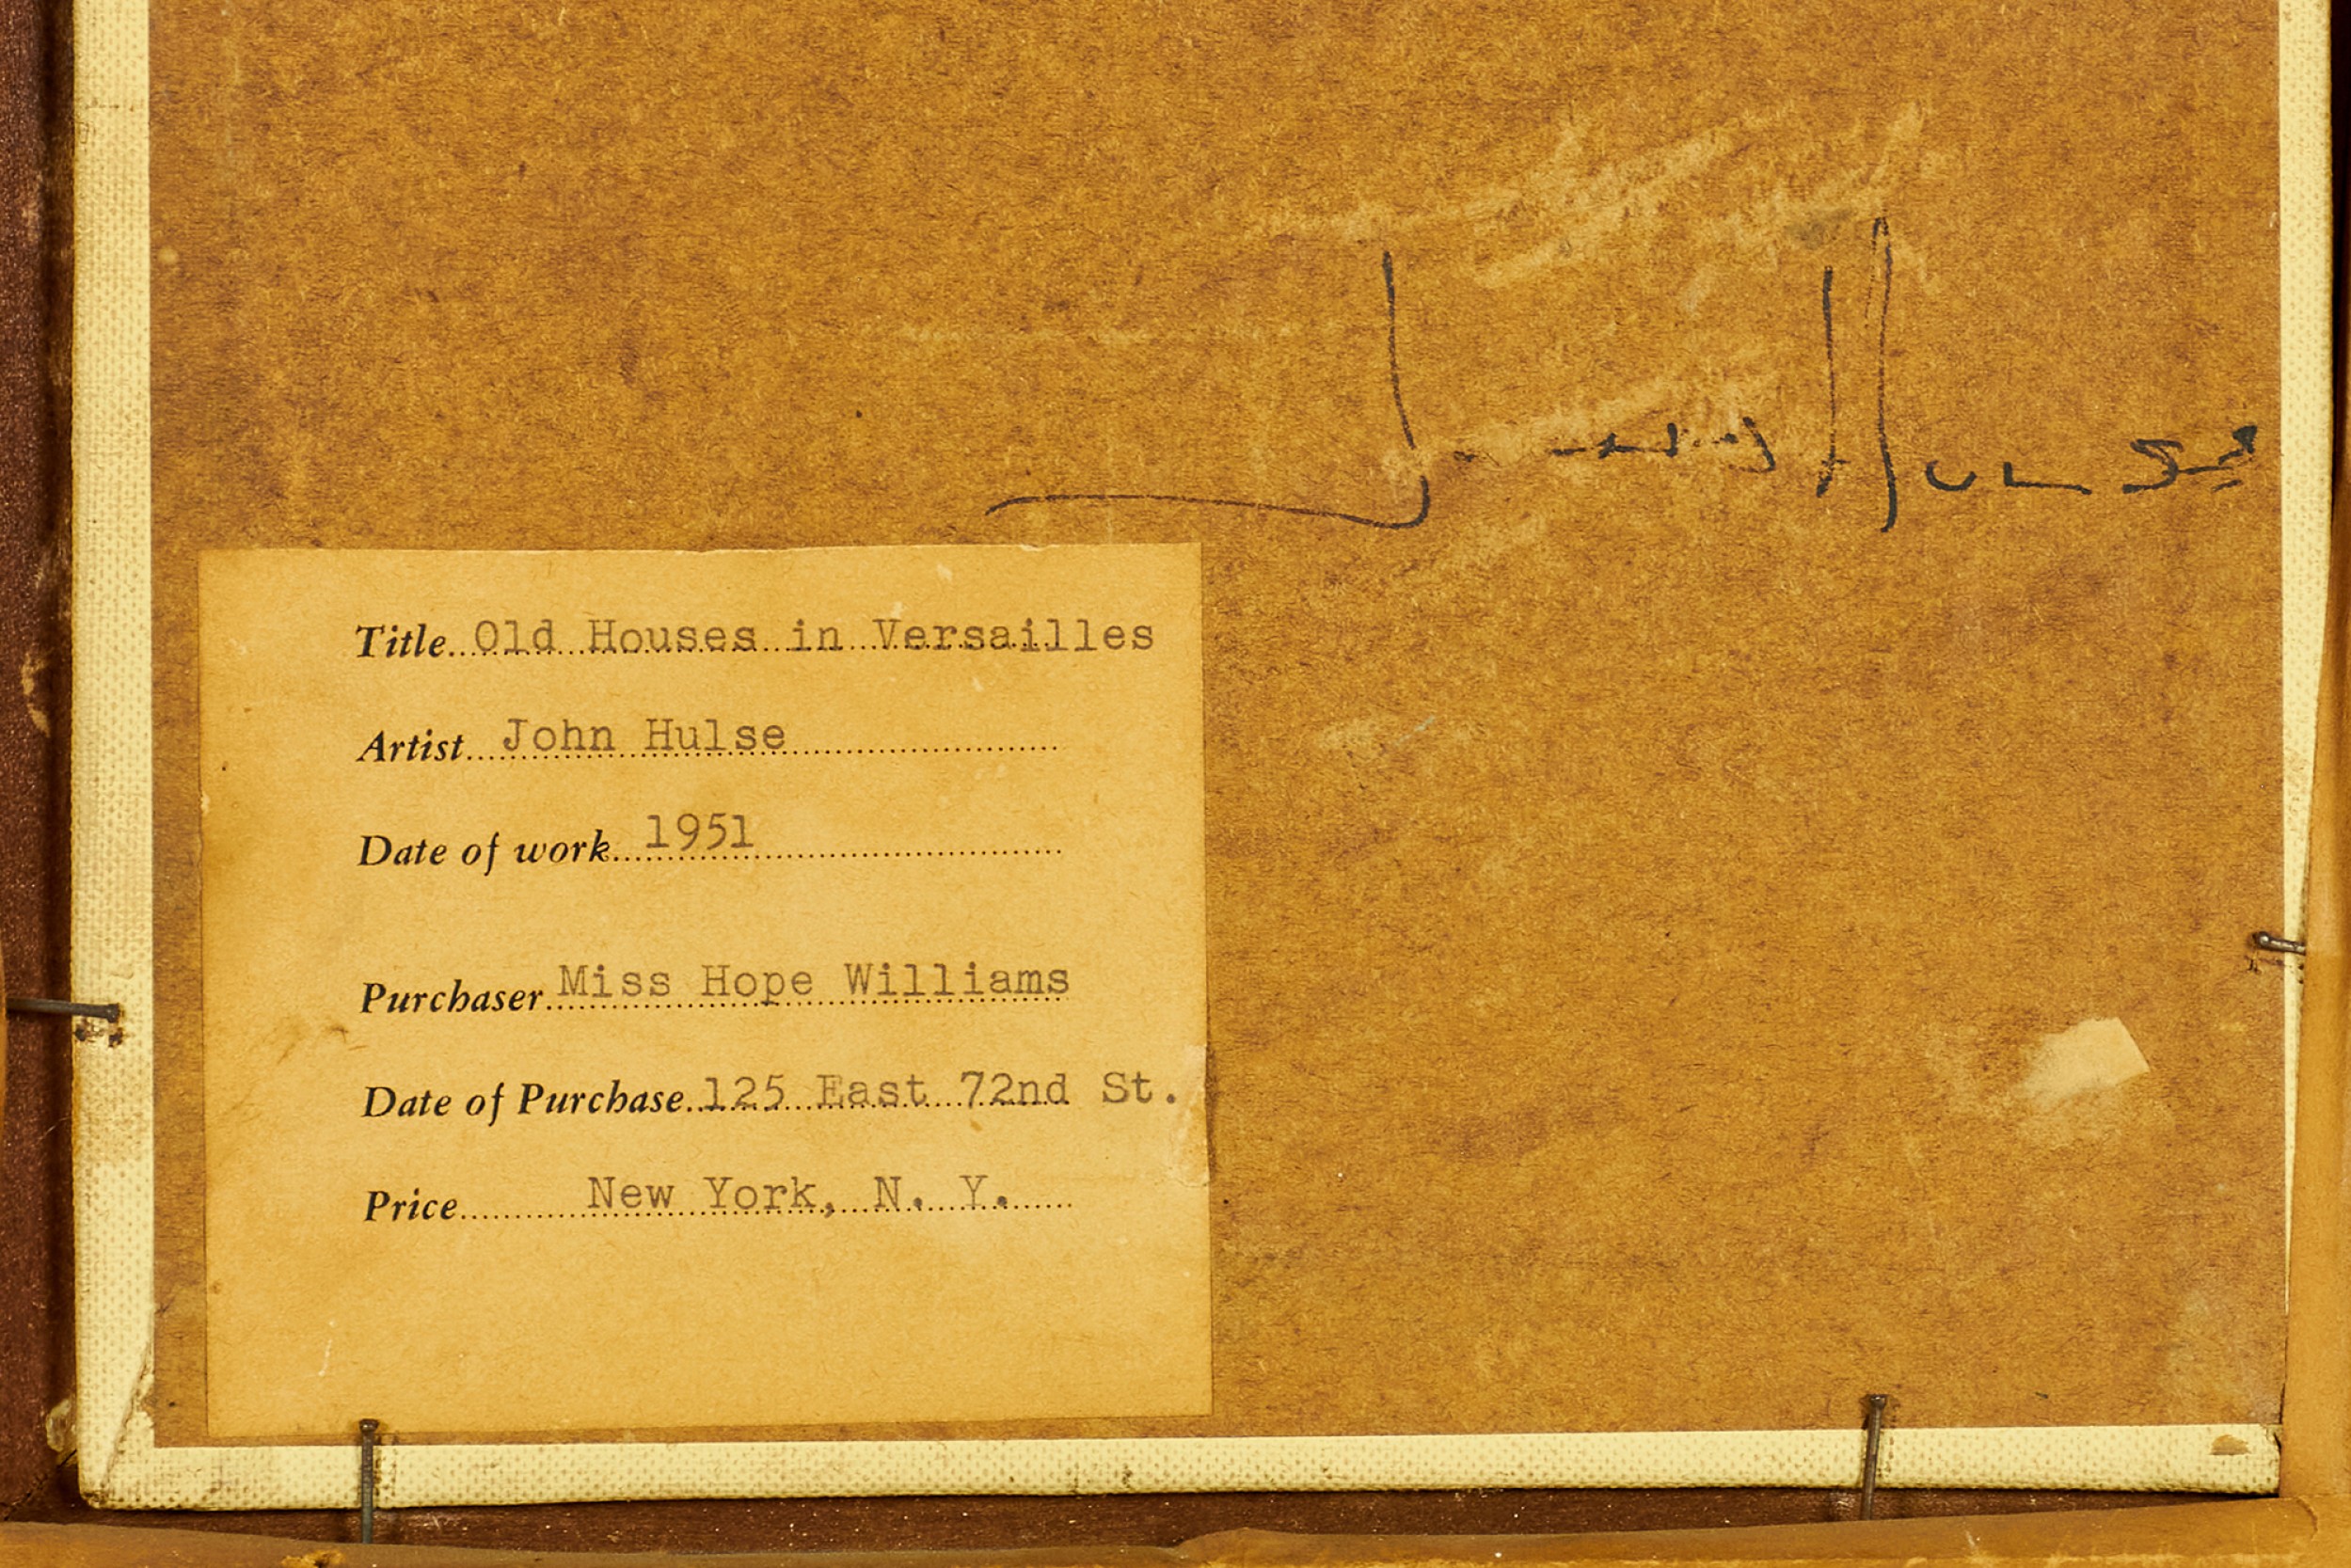 Hulse
Title..Old Houses in Versailles
Artist...John Hulse
Date of work...1951
Purchaser.Miss Hope Williams
Date of Purchase.125 East 72nd St.
Price.......New York, N. Y.